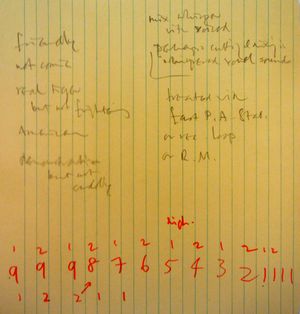 friendly
not comic
real tiger
but not frightening
American
demonstration
but not
cuddly
mix whisper
with voiced
perhaps cutting &
whispered vowel sounds
treated with
fast P.A. Stat.
or rev. loop
or R.M.
high.
1 2 1 2 1 2 1 2 1 2 1 2
9 9 9 8 7 6 5 4 3 2 1 1 1 1
1 2 2 1 1